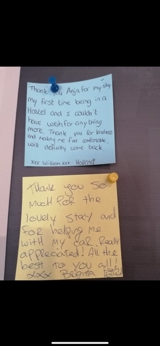 Thank you Anja for my stay
my first time being in a
Hostel and I couldn't
have wish for anything
more. Thank you for kindness
and making me feel
will definitely come back
xxx
Thank you so
much for the
lovely stay and
for helping me
with my car. Really
appreciated! All the
best to you all!